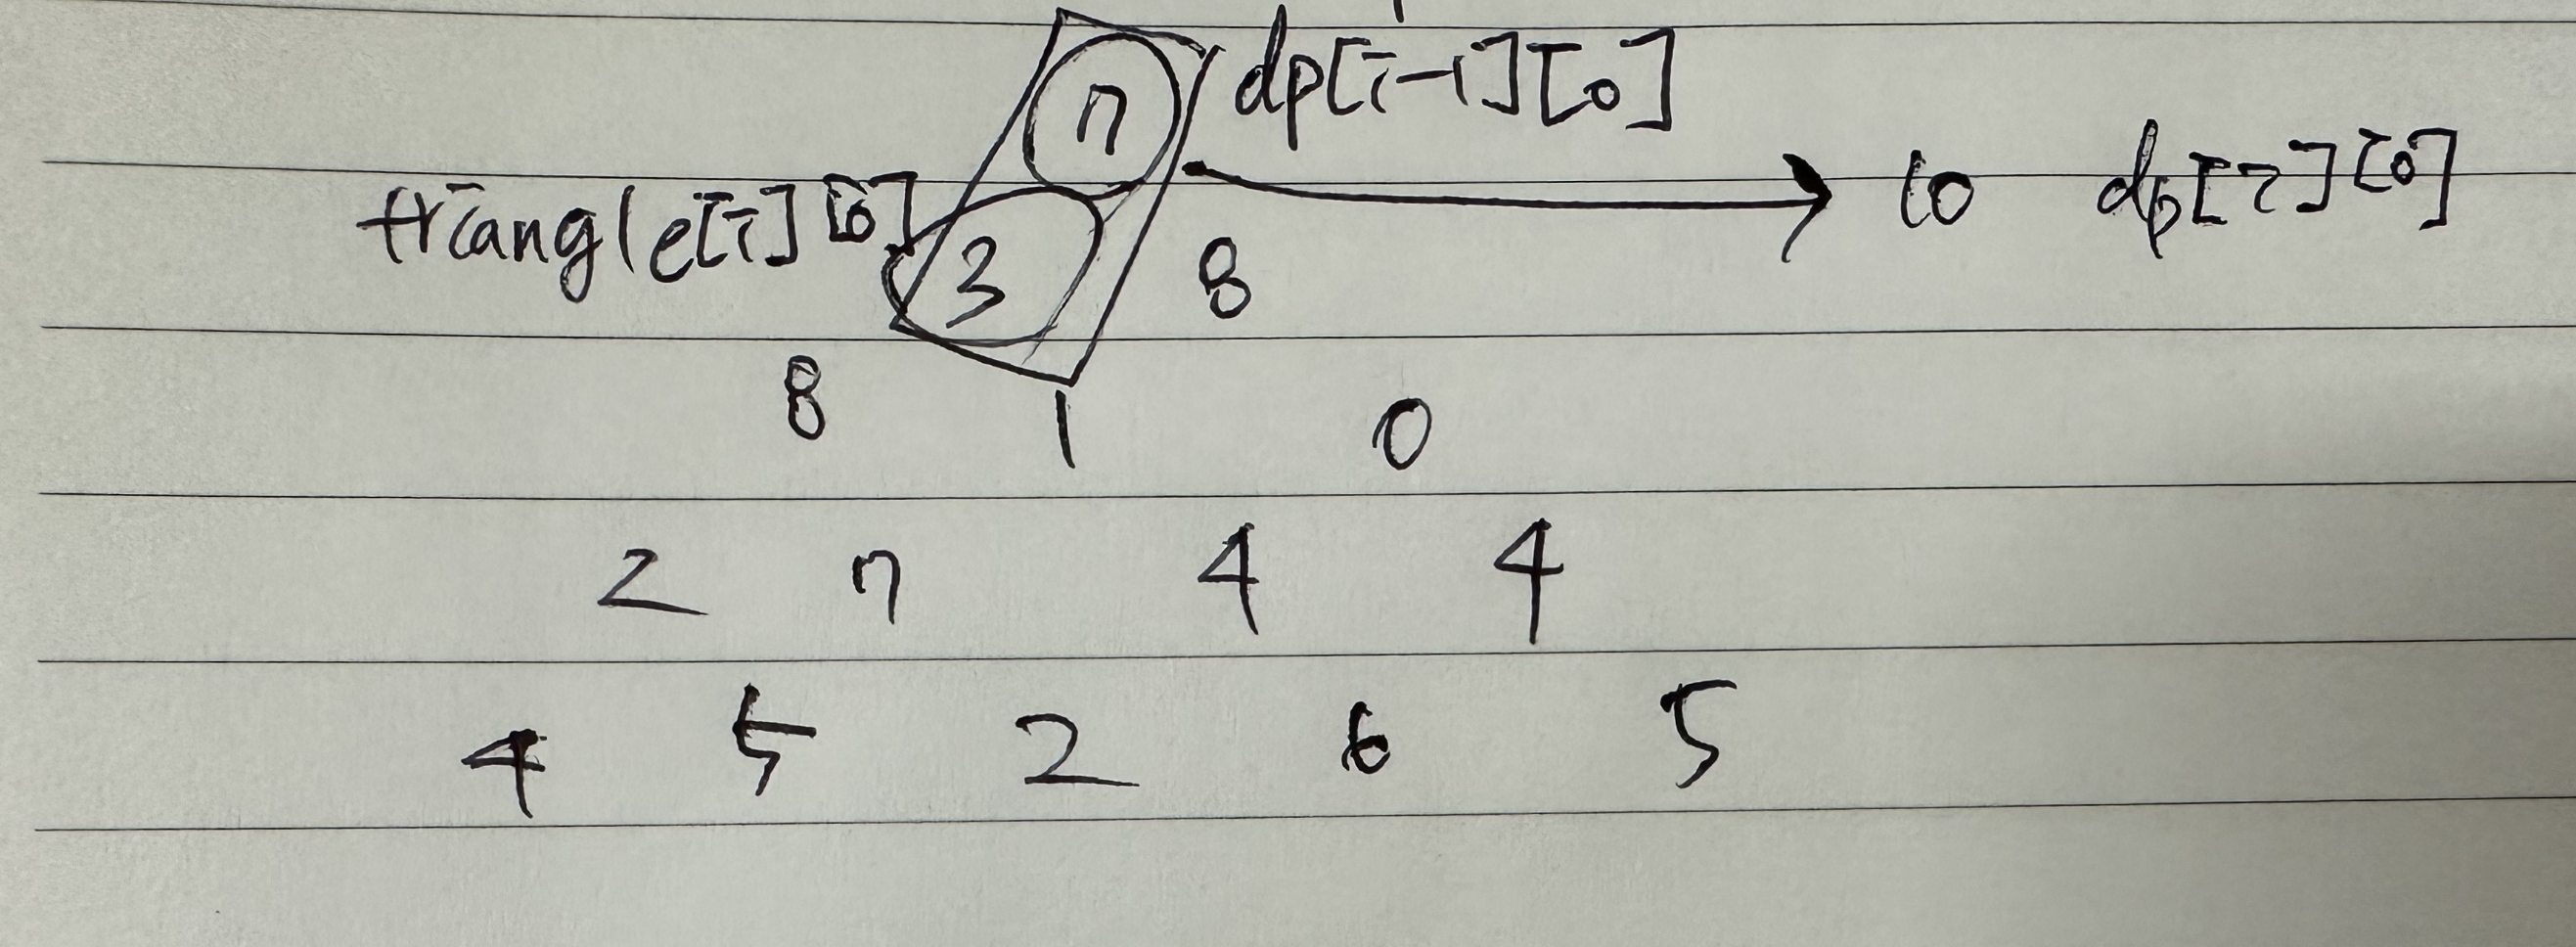 7 dp[i-1][0]
triangle[i][0] 3 8 10 dp[i][0]
8 1 0
2 7 4 4
4 5 2 6 5